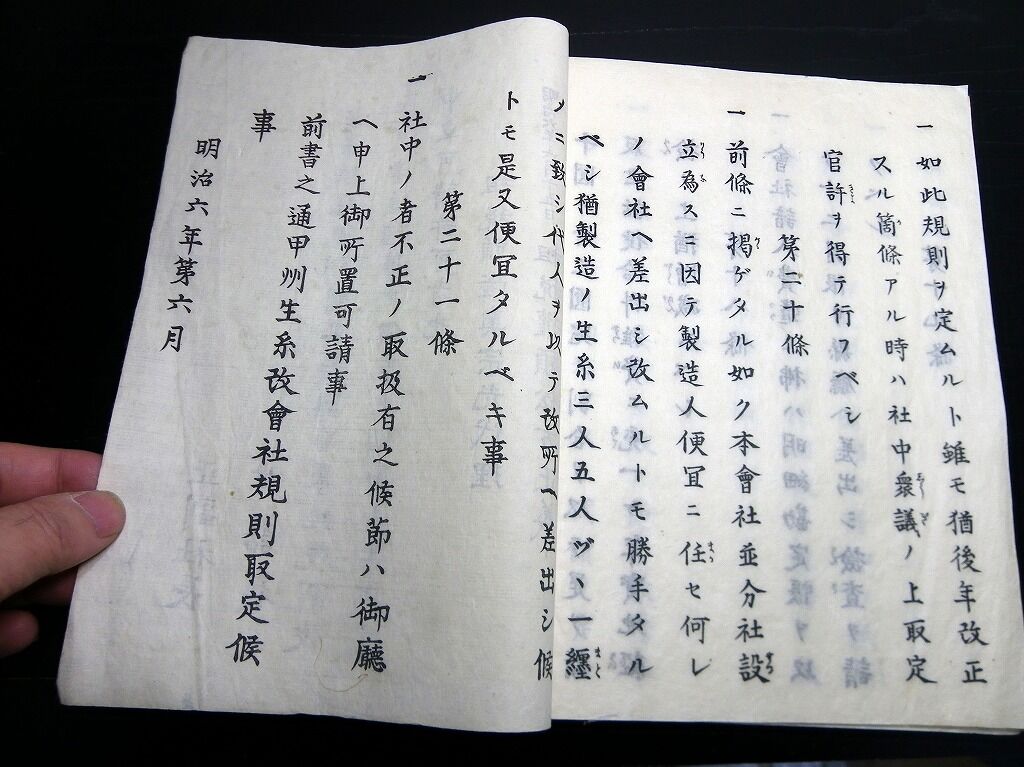 一如此規則ヲ定ムルト雖モ猶後年改正
スル箇条アル時ハ社中衆議ノ上取定
官許ヲ得テ行フベシ
第二十條
一前條ニ掲ゲタル如ク本會社並分社設
立為スニ因テ製造人便冝ニ任セ何レ
ノ會社ヘ差出シ改ムルトモ勝手タル
ベシ猶製造ノ生糸三人五人ヅヽ一纏
メニ致シ代人ヲ以テ改所ヘ差出シ候
トモ是又便冝タルベキ事
第二十一條
一社中ノ者不正ノ取扱有之候節ハ御廳
ヘ申上御所置可請事
前書之通甲州生糸改會社規則取定候
事
明治六年第六月